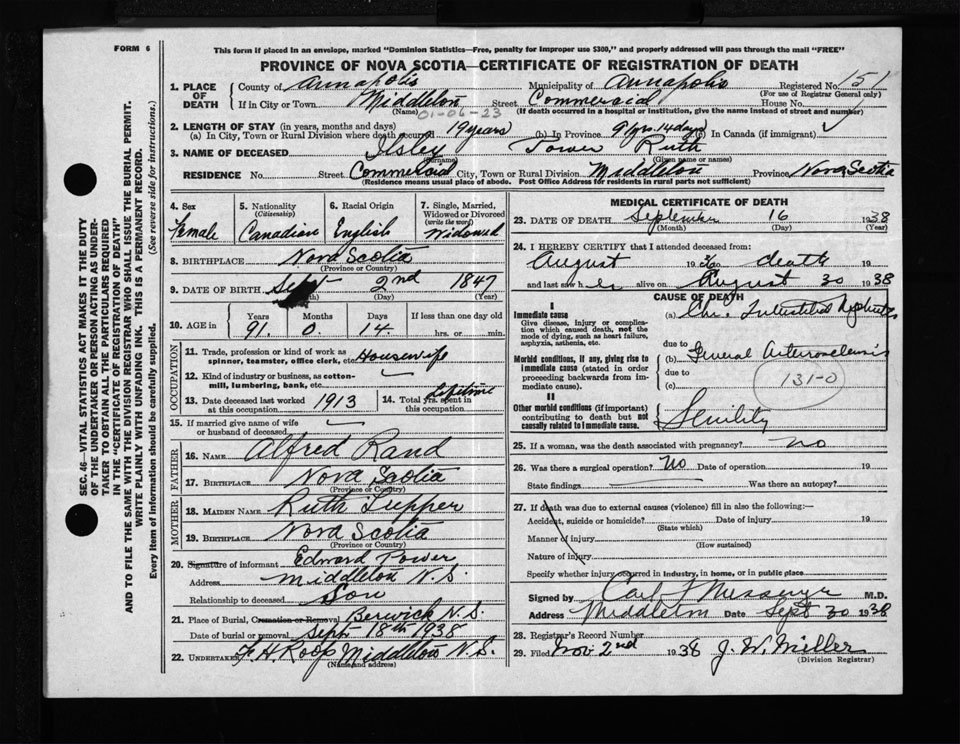 FORM 6
This form if placed in an envelope, marked "Dominion Statistics—Free, penalty for improper use $300," and properly addressed will pass through the mail "FREE"
PROVINCE OF NOVA SCOTIA—CERTIFICATE OF REGISTRATION OF DEATH
SEC. 46—VITAL STATISTICS ACT MAKES IT THE DUTY
OF THE UNDERTAKER OR PERSON ACTING AS UNDER-
TAKER TO OBTAIN ALL THE PARTICULARS REQUIRED
IN THE "CERTIFICATE OF REGISTRATION OF DEATH"
AND TO FILE THE SAME WITH THE DIVISION REGISTRAR WHO SHALL ISSUE THE BURIAL PERMIT.
WRITE PLAINLY WITH UNFADING INK. THIS IS A PERMANENT RECORD.
Every item of Information should be carefully supplied. (See reverse side for instructions.)
1. PLACE OF DEATH County of Annapolis Municipality of Annapolis Registered No. 151
(For use of Registrar General only)
If in City or Town Middleton Street Commercial House No.
(If death occurred in a hospital or institution, give the name instead of street and number)
01-06-23
2. LENGTH OF STAY (in years, months and days)
(a) In City, Town or Rural Division where death occurred 19 years (b) In Province 91 yrs. 14 days (c) In Canada (if immigrant)
3. NAME OF DECEASED Ilsley Tower Ruth
(Surname) (Given name or names)
RESIDENCE No. Street Commercial City, Town or Rural Division Middleton Province Nova Scotia
(Residence means usual place of abode. Post Office Address for residents in rural parts not sufficient)
4. Sex Female
5. Nationality (Citizenship) Canadian
6. Racial Origin English
7. Single, Married, Widowed or Divorced (write the word) Widowed
8. BIRTHPLACE Nova Scotia
(Province or Country)
9. DATE OF BIRTH Sept 2nd 1847
(Day) (Year)
10. AGE in Years 91 Months 0 Days 14 If less than one day old
hrs. or min.
OCCUPATION
11. Trade, profession or kind of work as spinner, teamster, office clerk, etc. Housewife
12. Kind of industry or business, as cotton-mill, lumbering, bank, etc.
13. Date deceased last worked at this occupation 1913
14. Total yrs. spent in this occupation Lifetime
15. If married give name of wife or husband of deceased
FATHER
16. NAME Alfred Rand
17. BIRTHPLACE Nova Scotia
(Province or Country)
MOTHER
18. MAIDEN NAME Ruth Tupper
19. BIRTHPLACE Nova Scotia
(Province or Country)
20. Signature of informant Edward Tower
Address Middleton N.S.
Relationship to deceased Son
21. Place of Burial, Cremation or Removal Berwick N.S.
Date of burial or removal Sept. 18th 1938
22. UNDERTAKER F. H. Roop Middleton N.S.
(Name and address)
MEDICAL CERTIFICATE OF DEATH
23. DATE OF DEATH September 16 1938
(Month) (Day) (Year)
24. I HEREBY CERTIFY that I attended deceased from:
August 1936 to death 19
and last saw her alive on August 30 1938
CAUSE OF DEATH
I
Immediate cause
Give disease, injury or complication which caused death, not the mode of dying, such as heart failure, asphyxia, asthenia, etc.
(a) Chr. Interstitial Nephritis
due to
Morbid conditions, if any, giving rise to immediate cause (stated in order proceeding backwards from immediate cause).
(b) General Arteriosclerosis
due to
(c) 131-0
II
Other morbid conditions (if important) contributing to death but not causally related to immediate cause.
Senility
25. If a woman, was the death associated with pregnancy? No
26. Was there a surgical operation? No Date of operation 19
State findings Was there an autopsy?
27. If death was due to external causes (violence) fill in also the following:—
Accident, suicide or homicide? Date of injury 19
(State which)
Manner of injury
(How sustained)
Nature of injury
Specify whether injury occurred in Industry, in home, or in public place
Signed by Carl Messenger M.D.
Address Middleton Date Sept 30 1938
28. Registrar's Record Number
29. Filed Nov. 2nd 1938 J. W. Miller
(Division Registrar)